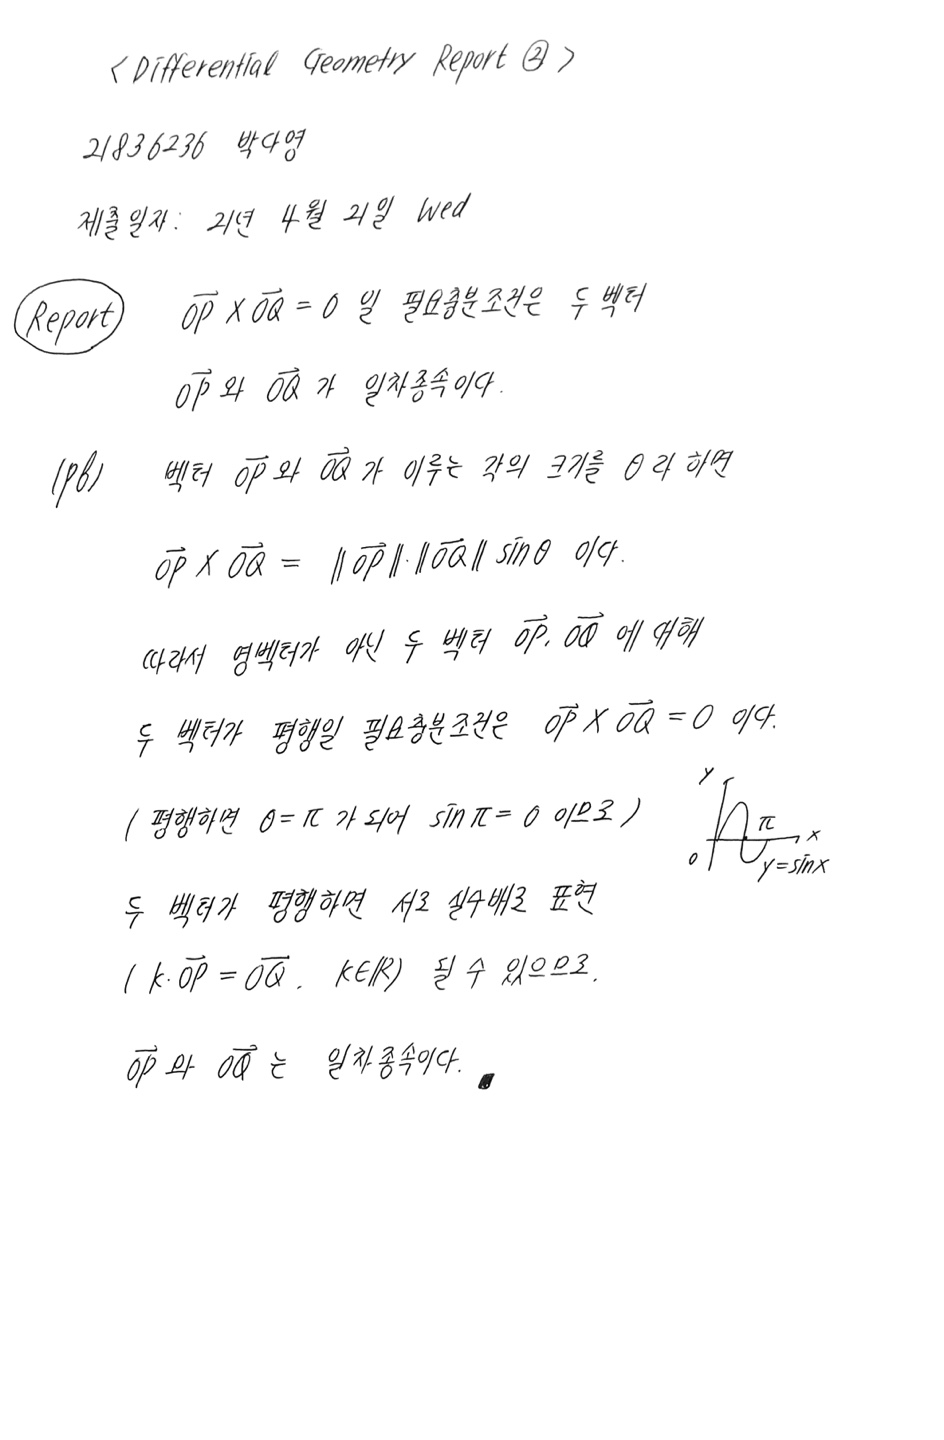 < Differential Geometry Report ② >
21836236 박다영
제출일자: 21년 4월 21일 Wed
Report
$\overrightarrow{OP} \times \overrightarrow{OQ} = 0$ 일 필요충분조건은 두 벡터
$\overrightarrow{OP}$ 와 $\overrightarrow{OQ}$ 가 일차종속이다.
(pf) 벡터 $\overrightarrow{OP}$ 와 $\overrightarrow{OQ}$ 가 이루는 각의 크기를 θ 라 하면
$\overrightarrow{OP} \times \overrightarrow{OQ} = \|\overrightarrow{OP}\| \cdot \|\overrightarrow{OQ}\| \sin\theta$ 이다.
따라서 영벡터가 아닌 두 벡터 $\overrightarrow{OP}, \overrightarrow{OQ}$ 에 대해
두 벡터가 평행일 필요충분조건은 $\overrightarrow{OP} \times \overrightarrow{OQ} = 0$ 이다.
( 평행하면 θ = π 가 되어 sin π = 0 이므로 )
y
π
x
0
y = sinx
두 벡터가 평행하면 서로 실수배로 표현
( $k \cdot \overrightarrow{OP} = \overrightarrow{OQ}$, $k \in \mathbb{R}$ ) 될 수 있으므로,
$\overrightarrow{OP}$ 와 $\overrightarrow{OQ}$ 는 일차종속이다. ■